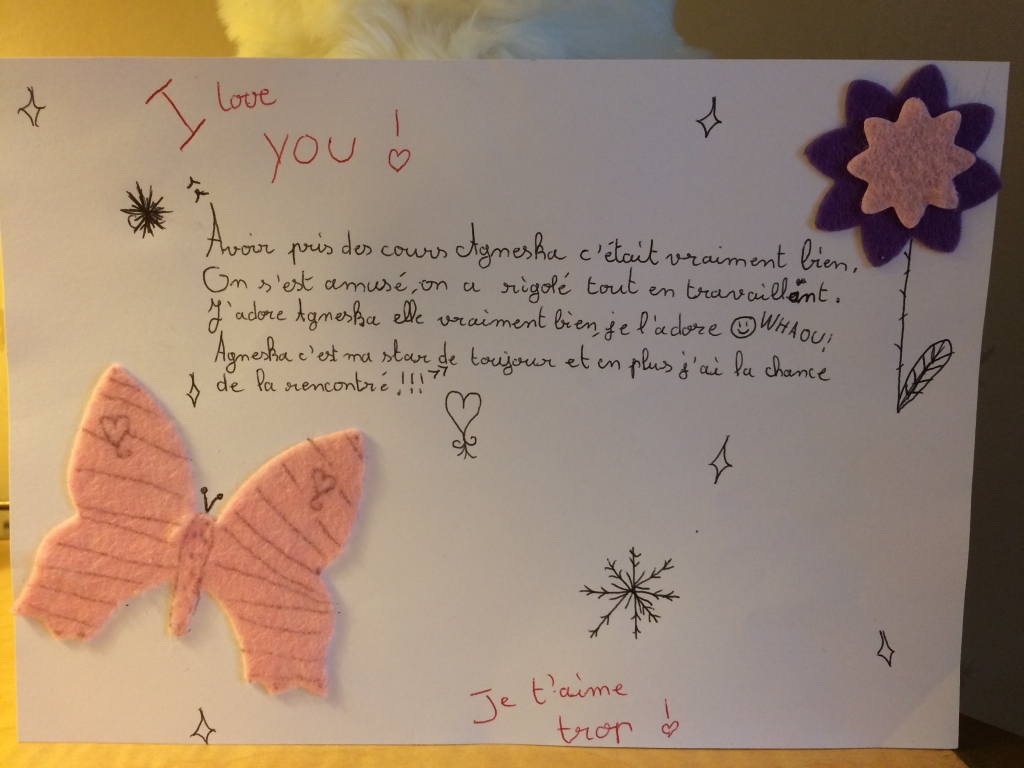 I love
YOU !
Avoir pris des cours Agneska c'était vraiment bien.
On s'est amusé, on a rigolé tout en travaillant.
J'adore Agneska elle vraiment bien, je l'adore ☺ WHAOU!
Agneska c'est ma star de toujour et en plus j'ai la chance
de la rencontré !!! "
Je t'aime
trop !